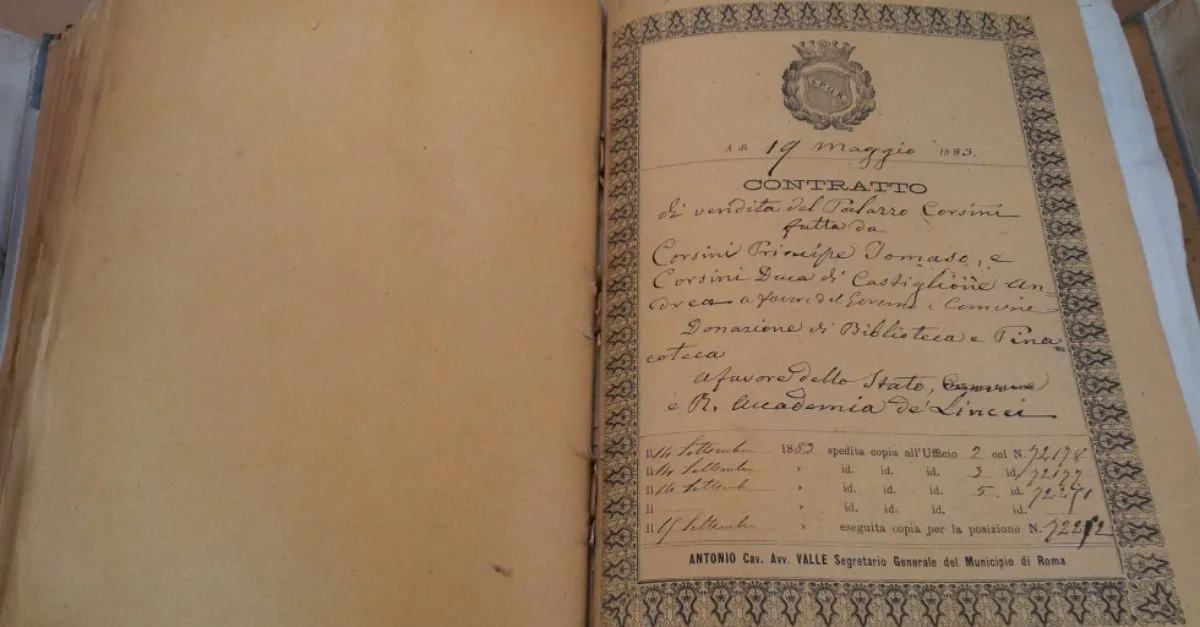 S.P.Q.R.
A dì 19 Maggio 1883.
CONTRATTO
di vendita del Palazzo Corsini
fatta da
Corsini Principe Tomaso, e
Corsini Duca di Castiglione An-
drea a favore del Governo e Comune
Donazione di Biblioteca e Pina-
coteca
a favore dello Stato, Comune
e R. Accademia de' Lincei
Il 14 Settembre 1883 spedita copia all'Ufficio 2 col N. 72178
Il 14 Settembre » id. id. id. 3 id. 72177
Il 14 Settemb » id. id. id. 5. id.
Il » id. id. id. id.
Il 15 Settembre » eseguita copia per la posizione N.
ANTONIO Cav. Avv. VALLE Segretario Generale del Municipio di Roma